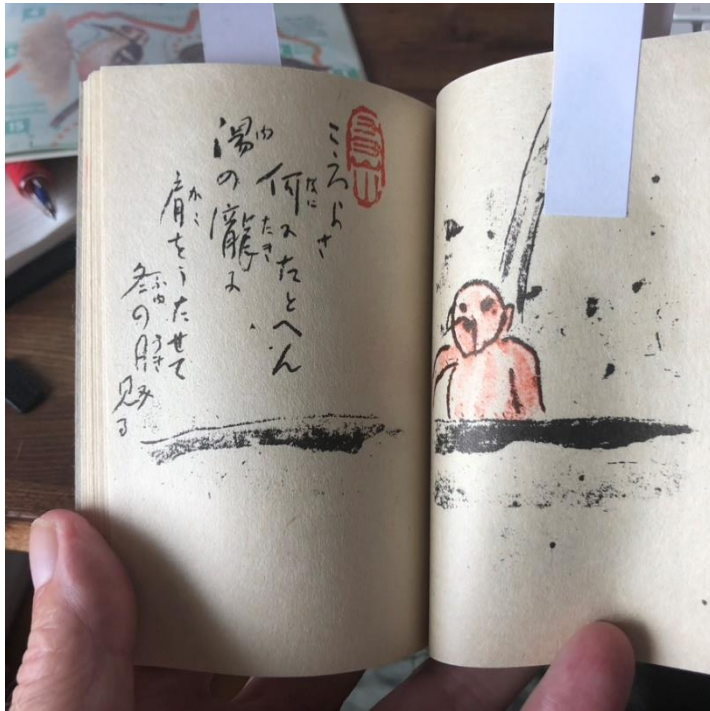 こころよさ
何にたとへん
湯の瀧に
肩をうたせて
冬の月見る